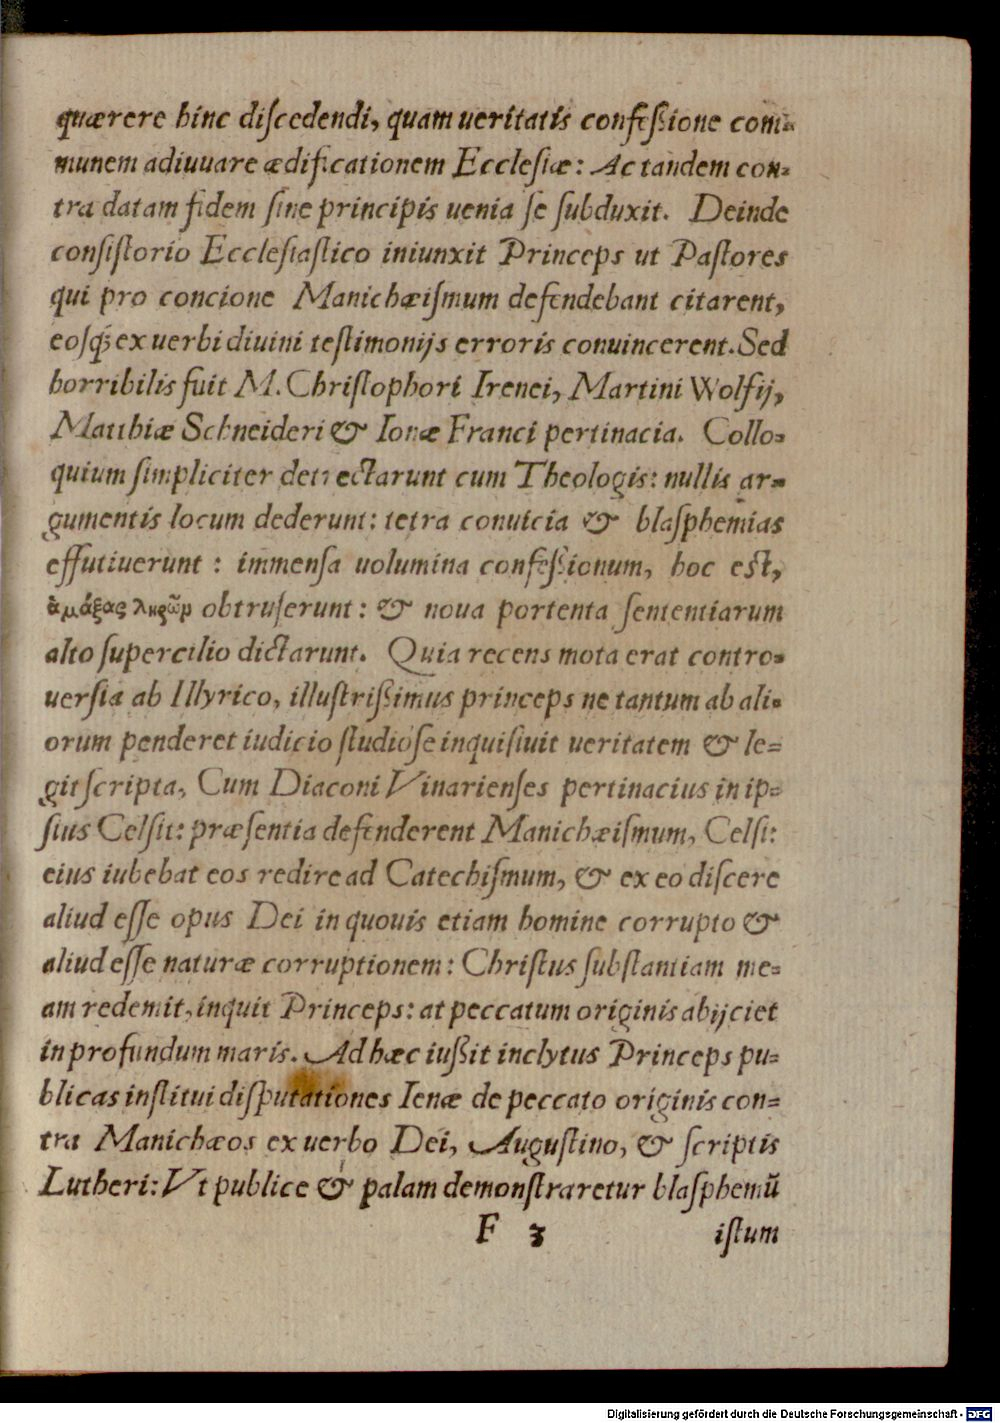 quærere hinc diſcedendi, quam ueritatis confeßione com-
munem adiuuare ædificationem Eccleſiæ: Ac tandem con-
tra datam fidem ſine principis uenia ſe ſubduxit. Deinde
conſiſtorio Eccleſiaſtico iniunxit Princeps ut Paſtores
qui pro concione Manichæiſmum defendebant citarent,
eoſq́; ex uerbi diuini teſtimonijs erroris conuincerent. Sed
horribilis fuit M. Chriſtophori Irenei, Martini Wolfij,
Matthiæ Schneideri & Ionæ Franci pertinacia. Collo-
quium ſimpliciter detrectarunt cum Theologis: nullis ar-
gumentis locum dederunt: tetra conuicia & blaſphemias
effutiuerunt : immenſa uolumina confeßionum, hoc eſt,
ἁμάξας ληρῶν obtruſerunt: & noua portenta ſententiarum
alto ſupercilio dictarunt. Quia recens mota erat contro-
uerſia ab Illyrico, illuſtrißimus princeps ne tantum ab ali-
orum penderet iudicio ſtudioſe inquiſiuit ueritatem & le-
git ſcripta, Cum Diaconi Vinarienſes pertinacius in ip-
ſius Celſit: præſentia defenderent Manichæiſmum, Celſi:
eius iubebat eos redire ad Catechiſmum, & ex eo diſcere
aliud eſſe opus Dei in quouis etiam homine corrupto &
aliud eſſe naturæ corruptionem: Chriſtus ſubſtantiam me-
am redemit, inquit Princeps: at peccatum originis abijciet
in profundum maris. Ad hæc iußit inclytus Princeps pu-
blicas inſtitui diſputationes Ienæ de peccato originis con-
tra Manichæos ex uerbo Dei, Auguſtino, & ſcriptis
Lutheri: Vt publice & palam demonſtraretur blaſphemũ
F 3 iſtum
Digitalisierung gefördert durch die Deutsche Forschungsgemeinschaft - DFG